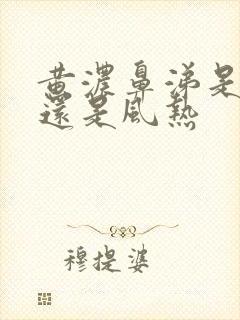 黄濃鼻涕是
還是風熱
穆提婆